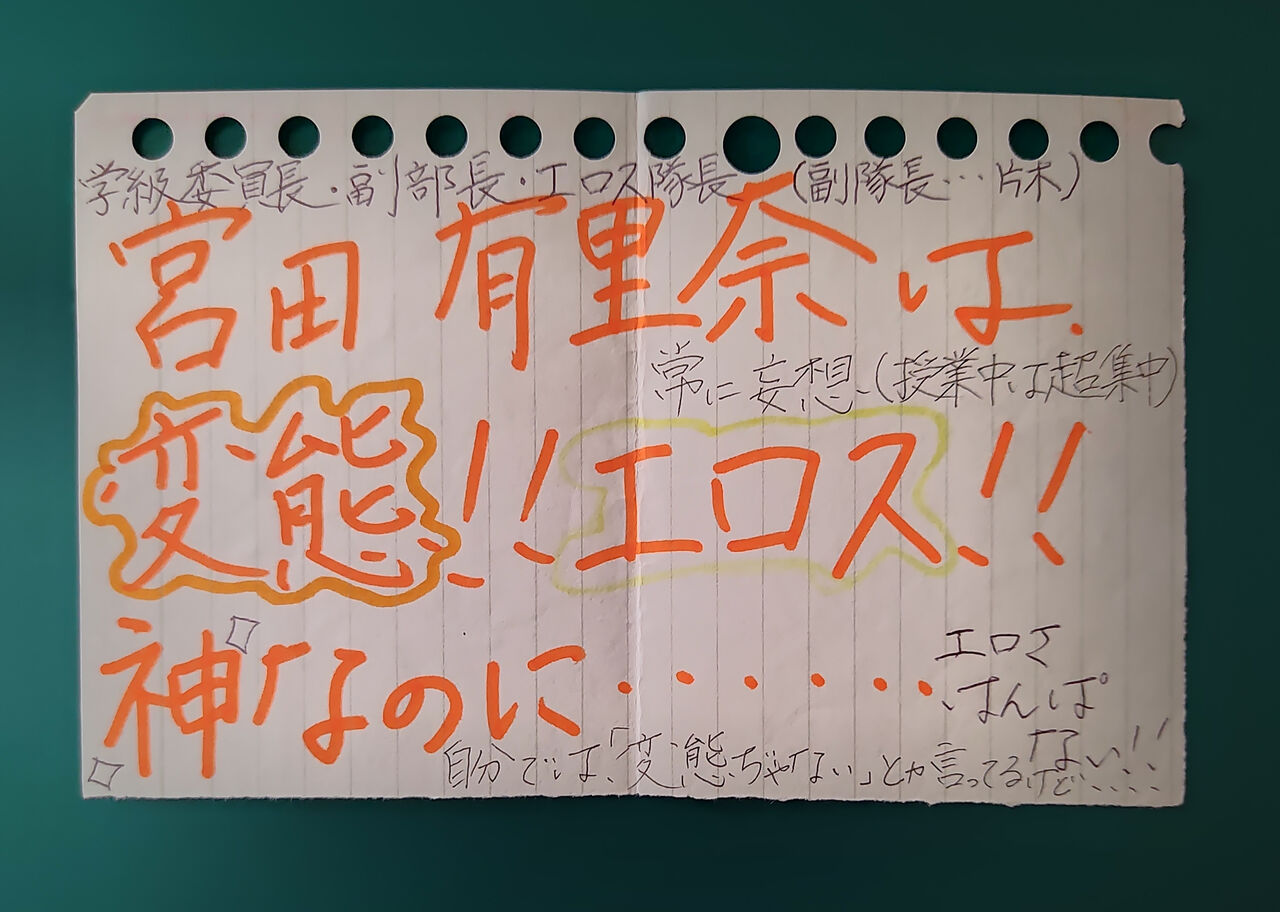 学級委員長・副部長・エロス隊長 (副隊長…片木)
宮田 有里奈は、
常に妄想、(授業中は超集中)
変態!!エロス!!
神なのに・・・・・・・
エロさ
はんぱ
ない!!
自分では、「変態ぢゃない」とか言ってるけど・・・!!